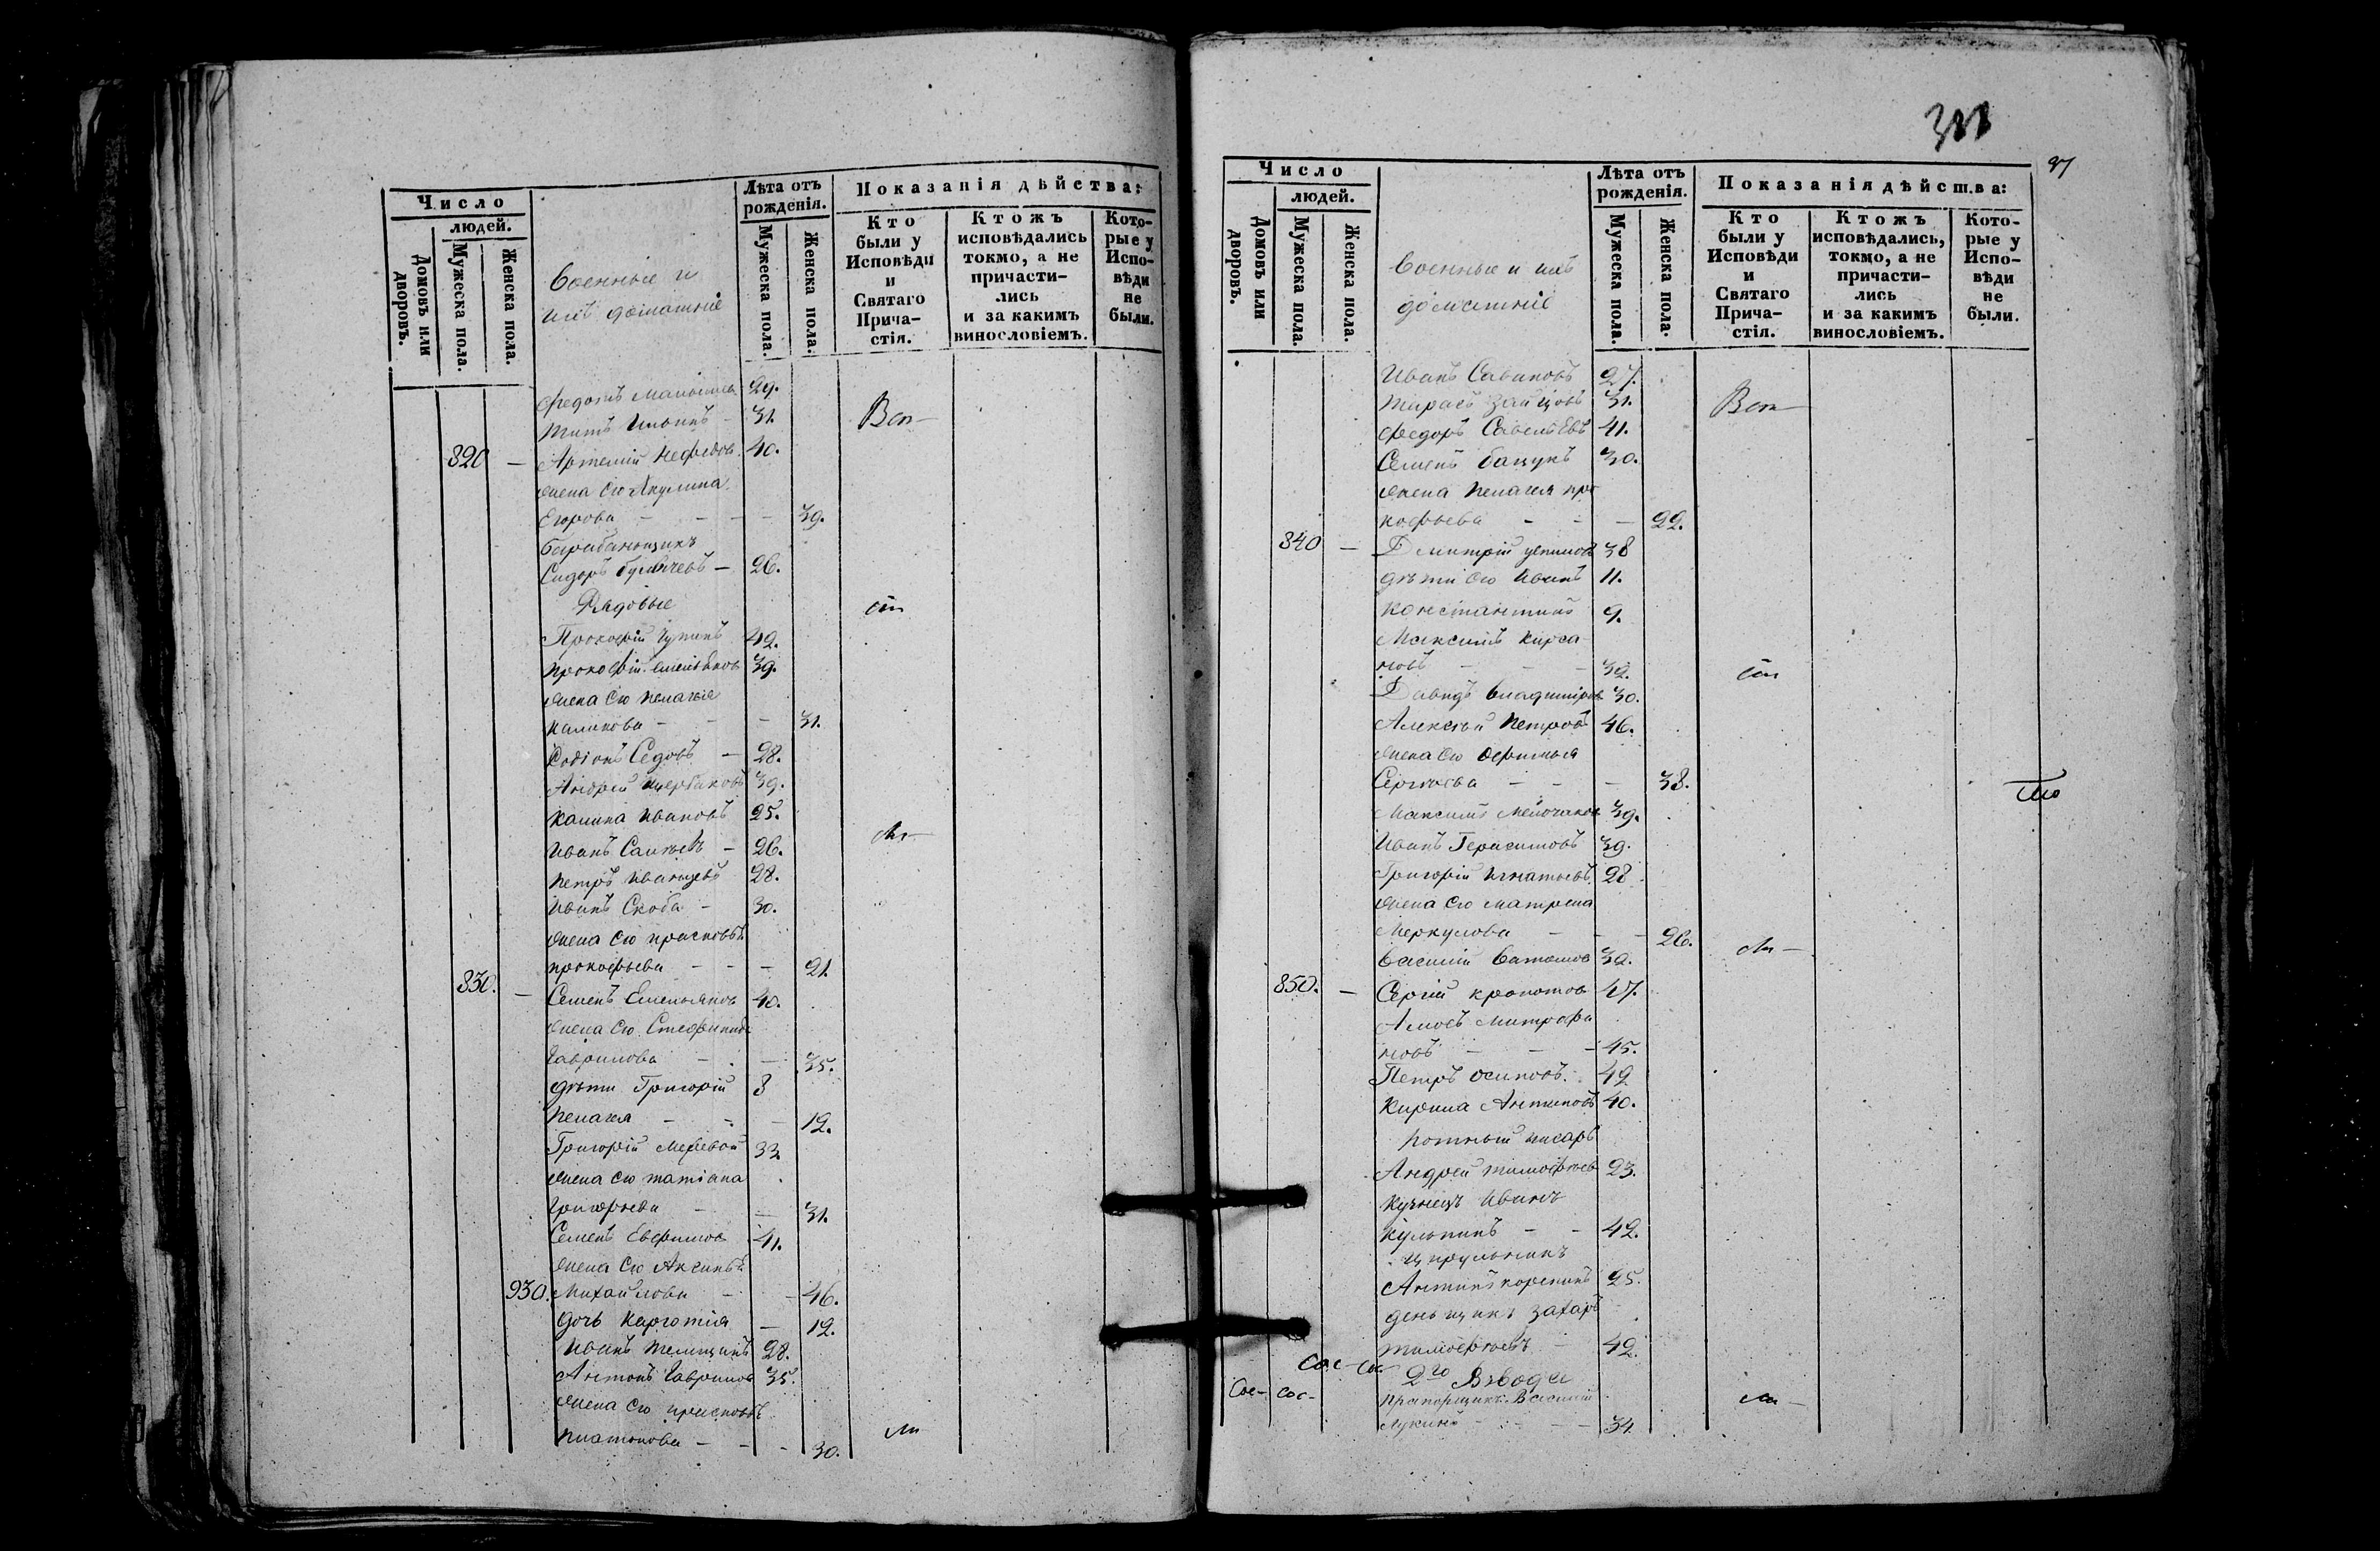 Число
людей.
Домовъ или дворовъ.
Мужеска пола.
Женска пола.
Военные и
ихъ домашніе
Лѣта отъ рожденія.
Мужеска пола.
Женска пола.
Показанія дѣйства:
Кто были у Исповѣди и Святаго Прича-стія.
Ктожъ исповѣдались токмо, а не причасти-лись и за какимъ винословіемъ.
Кото-рые у Испо-вѣди не были.
Федотъ 29.
Титъ Ильинъ - 31.
820 - Артемій Нефедовъ 40.
жена его Акулина
Егорова - - - - 39.
барабанщикъ
Сидоръ - 26.
Рядовые
Прокофій 42.
Прокофій Емельяновъ 39.
жена его Пелагѣе
Каликова - - - 31.
Родіонъ Седовъ - 28.
Андрей Щербаковъ 39.
Калина Ивановъ 25.
Иванъ - 26.
Петръ Иванцевъ 28.
Иванъ Скоба - 30.
жена его Прасковья
Прокофьева - - - 21.
830. - Семенъ Емельяновъ 40.
жена его Стефанида
Гаврилова - - - 35.
дѣти Григорій 8
Пелагея - - - 12.
Григорій 33
жена его Татіана
Григорьева - - 31.
Семенъ Евфимовъ 41.
жена его Аксинья
930. Михайлова - - 46.
дочь - 12.
Иванъ 28.
Антонъ Гавриловъ 35.
жена его Прасковья
Платонова - - - 30.
311
97
Число
людей.
Домовъ или дворовъ.
Мужеска пола.
Женска пола.
Военные и ихъ
домашніе
Лѣта отъ рожденія.
Мужеска пола.
Женска пола.
Показанія дѣйства:
Кто были у Исповѣди и Святаго Прича-стія.
Ктожъ исповѣдались, токмо, а не причасти-лись и за какимъ винословіемъ.
Кото-рые у Испо-вѣди не были.
Иванъ Савиновъ 27.
Тарасъ Зайцовъ 31.
Федоръ Савельевъ 41.
Семенъ 30.
жена Пелагея Про
кофьева - - - 22.
840 - Дмитрій 38
дѣти его Иванъ 11.
Константинъ 9.
Максимъ Кирса
новъ - - - 32.
Давидъ Владиміровъ 30.
Алексѣй Петровъ 46.
жена его Ефимья
Сергѣева - - - 38.
Максимъ 39.
Иванъ Герасимовъ 39.
Григорій Игнатьевъ 28
жена его Матрена
Меркулова - - - 26.
Василій 32.
850. - Сергій Кропотовъ 47.
Амосъ Митрофа
новъ - - - 45.
Петръ Осиповъ. 42
Кирила Антиповъ 40.
Ротный писарь
Андрей Тимофѣевъ 23.
Кузнецъ Иванъ
Кульпинъ - - 42.
Цырульникъ
Антипъ 25.
деньщикъ Захаръ
Тимофѣевъ - 42.
2го Взвода
прапорщикъ Василій
Лукинъ - - - 34.